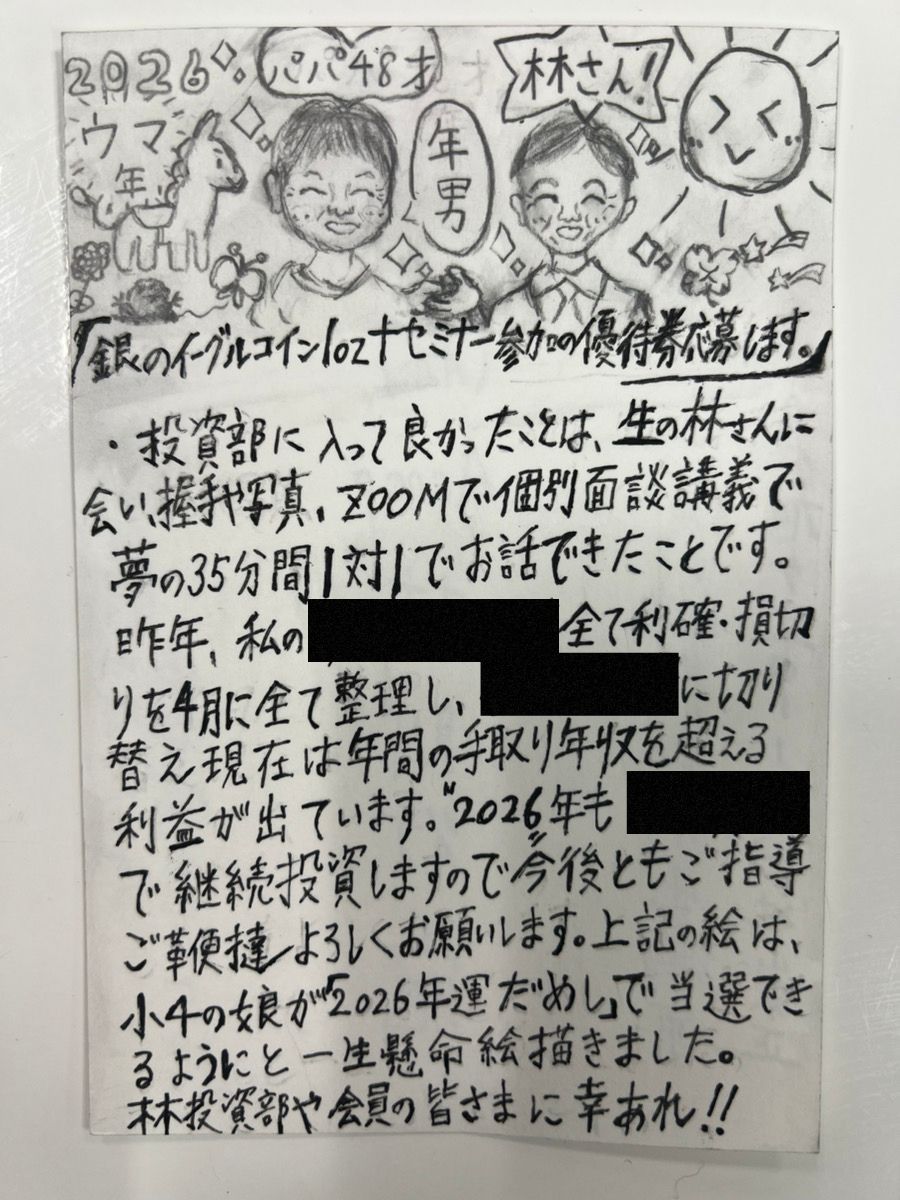 2026
ウマ年
パパ48才
年男
林さん!
「銀のイーグルコイン1oz十セミナー参加の優待券応募します。」
・投資部に入って良かったことは、生の林さんに
会い、握手や写真、ZOOMで個別面談講義で
夢の35分間1対1でお話できたことです。
昨年、私の 全て利確・損切
りを4月に全て整理し、 に切り
替え現在は年間の手取り年収を超える
利益が出ています。"2026年も
で継続投資しますので"今後ともご指導
ご鞭撻よろしくお願いします。上記の絵は、
小4の娘が「2026年運だめし」で当選でき
るようにと一生懸命絵描きました。
林投資部や会員の皆さまに幸あれ!!